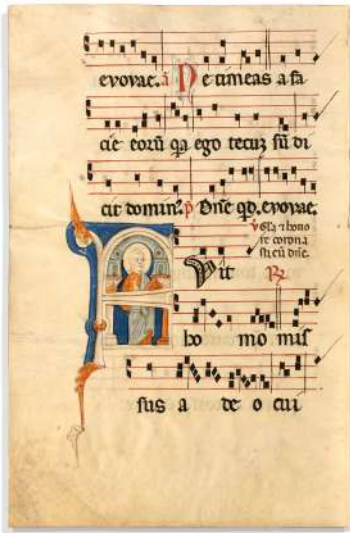 evovae. a Ne timeas a fa
cie eorū qa ego tecuz sū di
cit domin. p Dñe qd. evovae.
v Gla z hono
re corona
sti eū dñe.
Vit R
ho mo mis
sus a de o cui